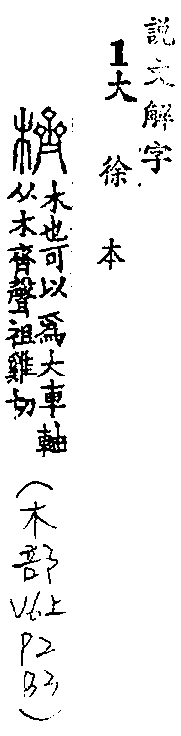 說文解字
1大徐本
木也可以爲大車軸
从木齊聲祖雞切
(木部V6上P2B3)